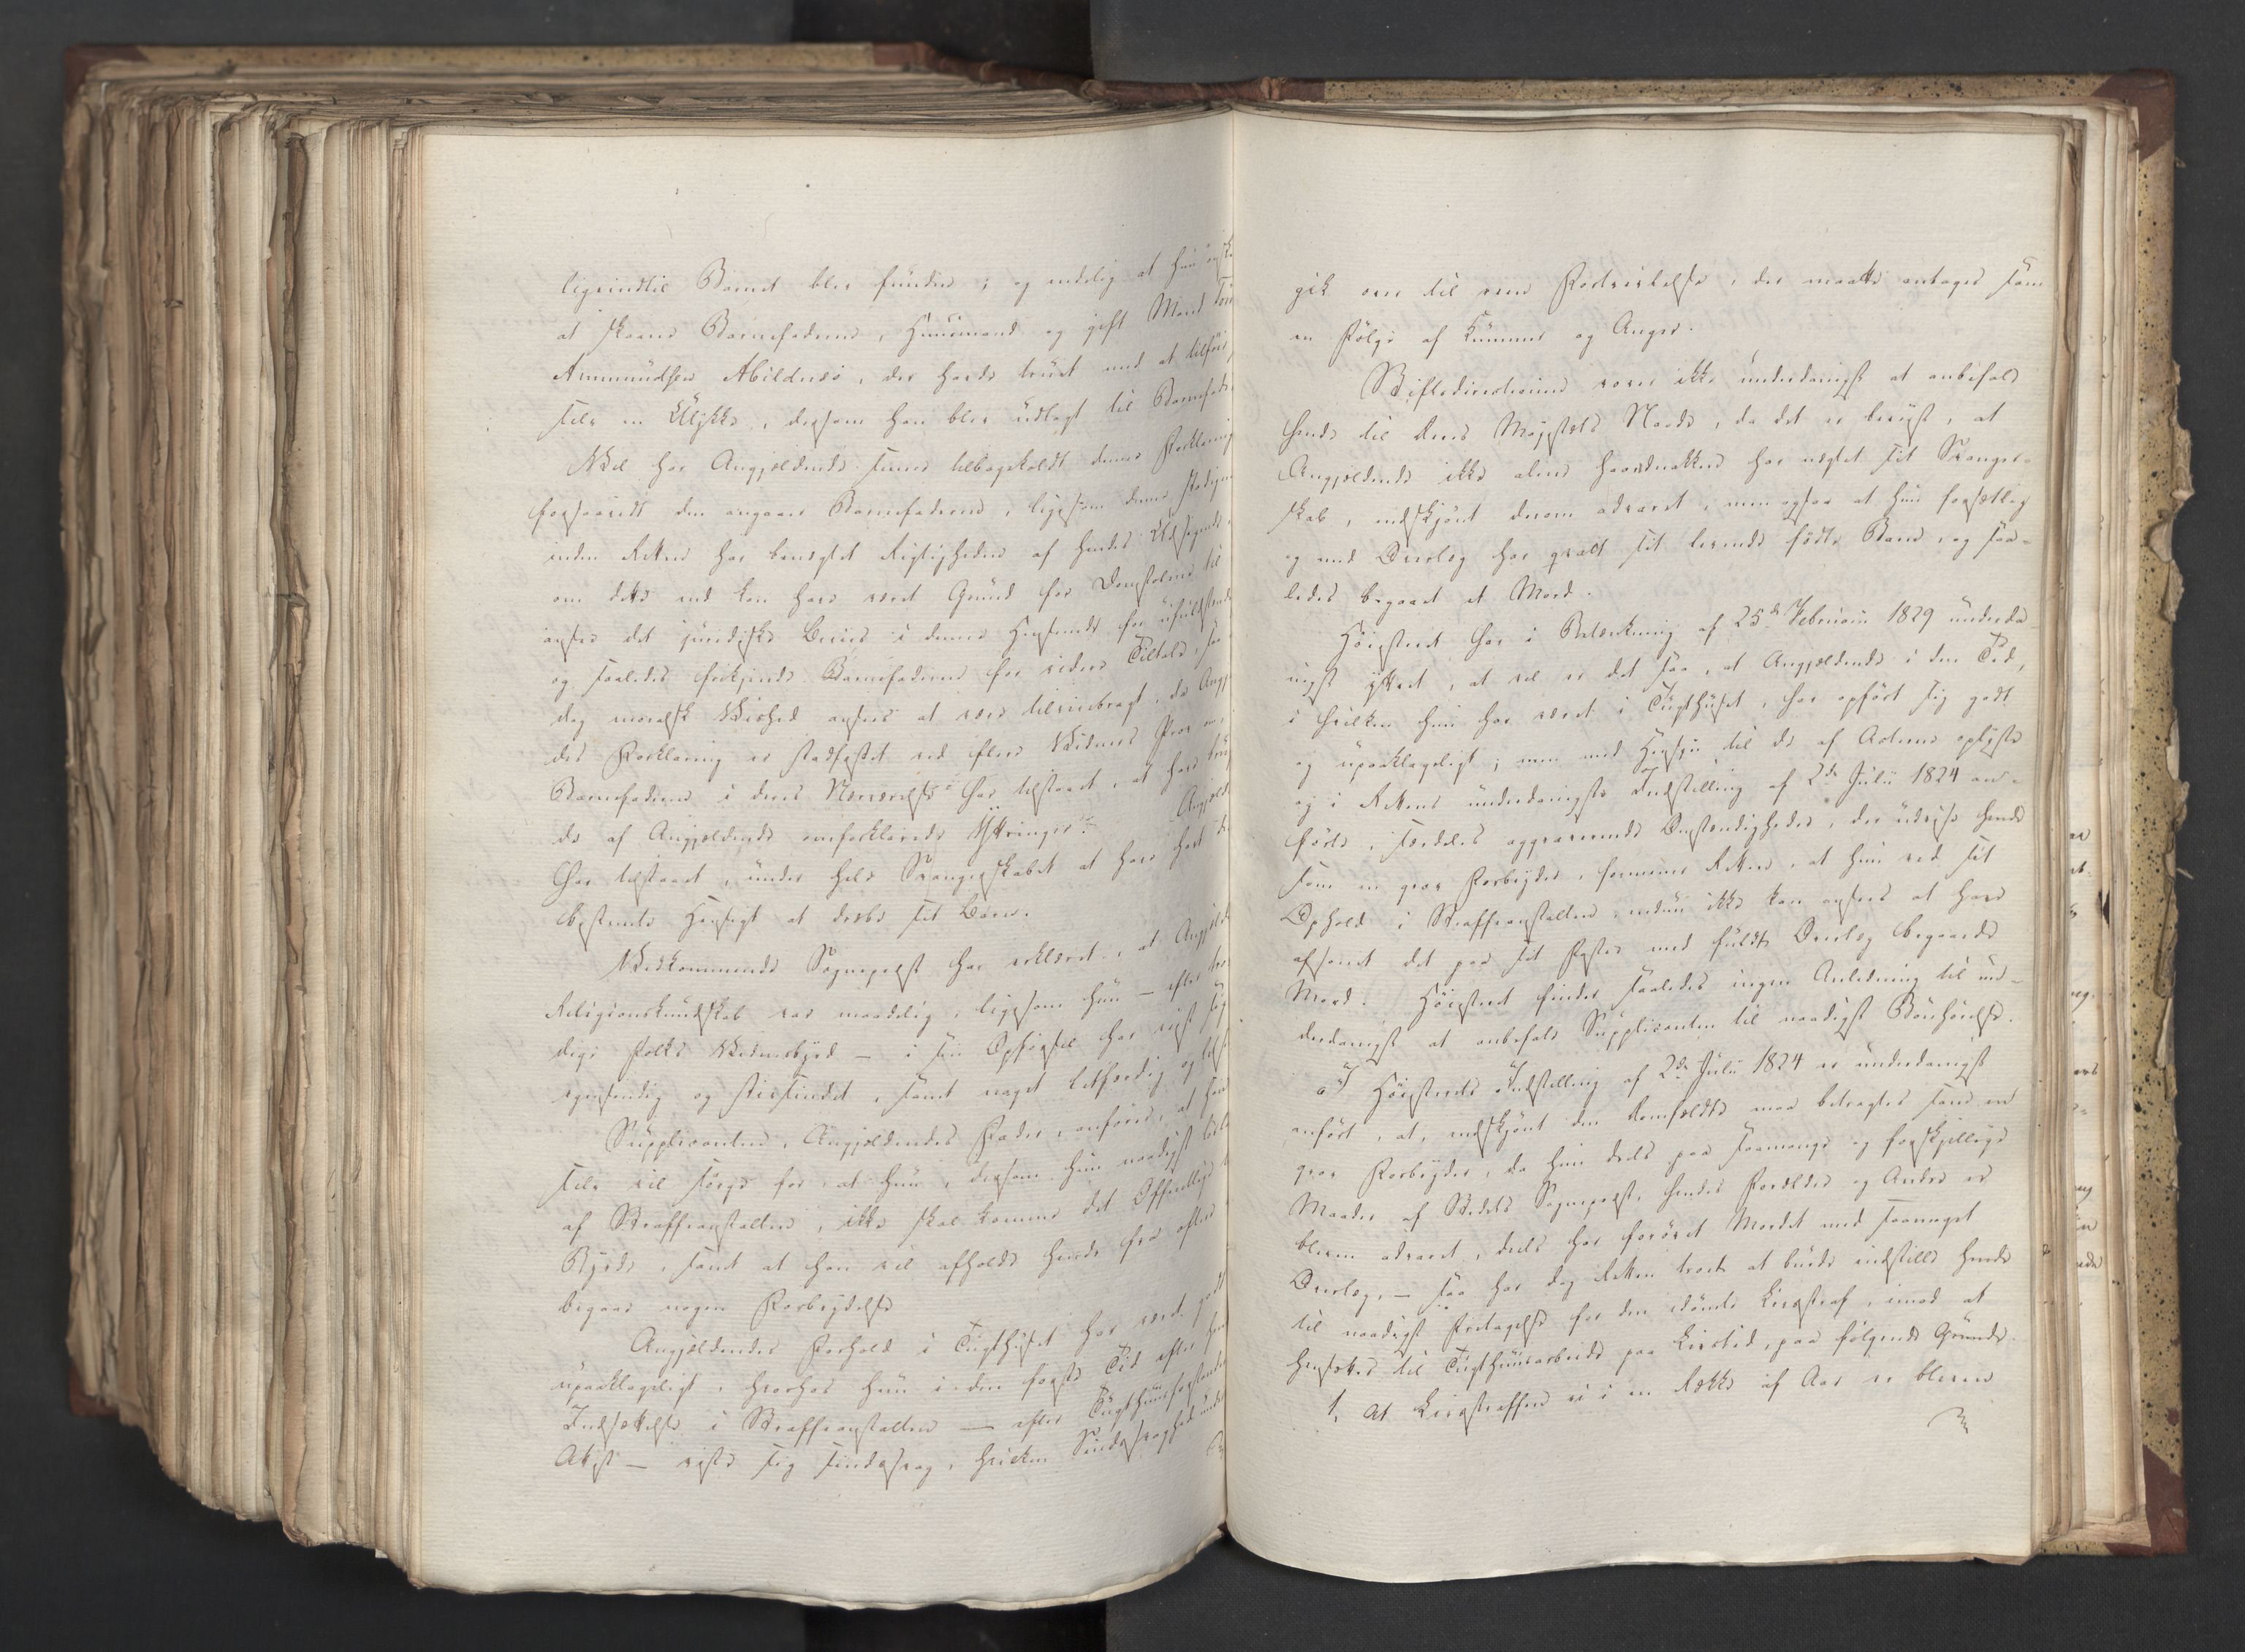 ligeindtil Barnet blev fundet; og endelig at hun ønske
at skaane Barnefaderen, Huusmand og gift Mand Tør
Ammundsen Abildsnes, der havde truet med at tilføie
selv en Ulykke, dersom han blev udlagt til Barnefader.
Vel har Angjeldende siden tilbagekaldt denne Forklaring
forsaavidt den angaaer Barnefaderen, ligesom denne stedse
inden Retten har benegtet Rigtigheden af hendes Udsigende,
om dette end kan have været Grund for Domstolene til
ansee det juridiske Beviis i denne Henseende for ufuldstændi
og saaledes frikjende Barnefaderen for videre Tiltale, saa
dog moralsk Vished ansees at være tilveiebragt, da Angj
des Forklaring er stadfæstet ved flere Vidners Prov om,
Barnefaderen i deres Nærværelse har tilstaaet, at have bru
de af Angjeldende omforklarede Yttringer. Angjeld
har tilstaaet, under hele Svangerskabet at have havt den
bestemte Hensigt at dræbe sit Barn.
Vedkommende Sogneprest har erklæret, at Angjelde
Religionskundskab var maadelig, ligesom hun – efter tro
dige Folks Vidnesbyrd – i sin Opførsel har viist sig
egensindig og stivsindet, samt noget letfærdig og
Supplicanten, Angjeldendes Fader, anfører, at han
selv vil sørge for at hun, dersom hun naadigst løsla
af Straffeanstalten, ikke skal komme det Offentlige
Byrde, samt at han vil afholde hende fra oftere
begaae nogen Forbrydelse
Angjeldendes Forhold i Tugthuset har været godt
upaaklageligt, hvorhos hun i den første Tid efter hen
Indsættelse i Straffeanstalten – efter Tugthuusforstander
Attest – viste sig sindssvag, hvilken Sindssvaghed under
gik over til reen Fortvivlelse, der maatte antages som
en Følge af Kummer og Anger.
Stiftsdirectionen vover ikke underdanigst at anbefale
hende til Deres Majestæts Naade, da det er beviist, at
Angjeldende ikke alene haardnakket har negtet sit Svanger-
skab, endskjønt derom advaret, men ogsaa at hun forsætlig
og med Overlæg har qvalt sit levende fødte Barn, og saa-
ledes begaaet et Mord.
Høiesteret har i Betænkning af 25de Februarii 1829 underda-
nigst yttret, at vel er det saa, at Angjeldende i den Tid,
i hvilken hun har været i Tugthuset, har opført sig godt
og upaaklageligt; men med Hensyn til de af Acterne oplyste
og i Rettens underdanigste Indstilling af 2de Julii 1824 an-
førte, særdeles aggraverende Omstændigheder, der udvise hende
som en grov Forbryder, formener Retten, at hun ved sit
Ophold i Straffeanstalten endnu ikke kan ansees at have
afsonet det paa sit Foster med fuldt Overlæg begaaede
Mord. Høiesteret finder saaledes ingen Anledning til un-
derdanigst at anbefale Supplicanten til naadigst Bønhørelse.
I Høiesterets Indstilling af 2de Julii 1824 er underdanigst
anført, at, endskjønt den Domfældte maa betragtes som en
grov Forbryder, da hun deels paa saamange og forskjellige
Maader af Stedets Sogneprest, hendes Forældre og Andre er
bleven advaret, deels har forøvet Mordet med saameget
Overlæg, – saa har dog Retten troet at burde indstille hende
til naadigst Fritagelse for den idømte Livsstraf, imod at
hensættes til Tugthuusarbeide paa Livstid, paa følgende Grunde
1, At Livsstraffen ei i en Række af Aar er bleven